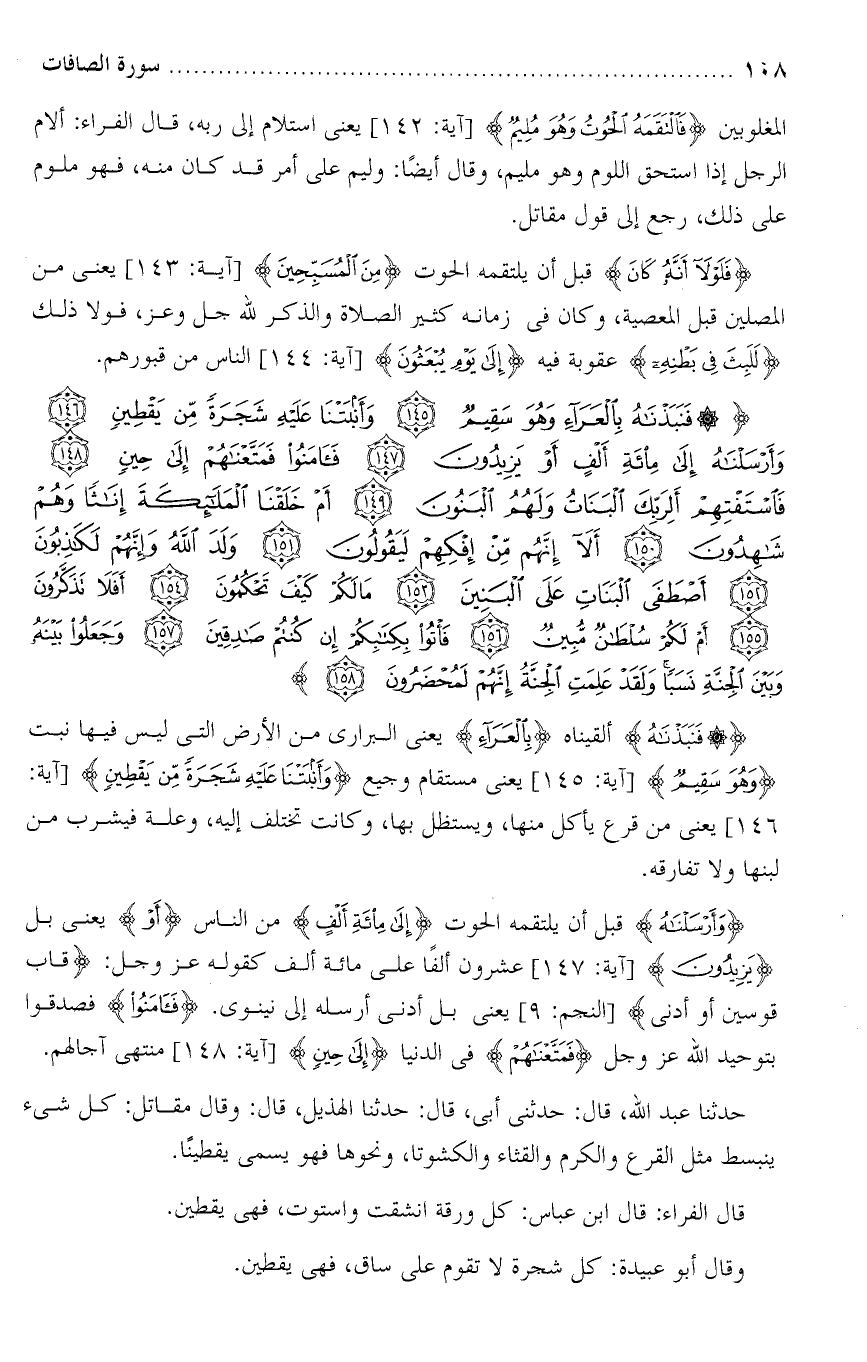 ١٠٨ ........................................................................ سورة الصافات
المغلوبين ﴿فَالْتَقَمَهُ الْحُوتُ وَهُوَ مُلِيمٌ﴾ [آية: ١٤٢] يعنى استلام إلى ربه، قال الفراء: ألام
الرجل إذا استحق اللوم وهو مليم، وقال أيضًا: وليم على أمر قد كان منه، فهو ملوم
على ذلك، رجع إلى قول مقاتل.
﴿فَلَوْلَآ أَنَّهُۥ كَانَ﴾ قبل أن يلتقمه الحوت ﴿مِنَ الْمُسَبِّحِينَ﴾ [آية: ١٤٣] يعنى من
المصلين قبل المعصية، وكان فى زمانه كثير الصلاة والذكر لله جل وعز، فولا ذلك
﴿لَلَبِثَ فِى بَطْنِهِۦٓ﴾ عقوبة فيه ﴿إِلَىٰ يَوْمِ يُبْعَثُونَ﴾ [آية: ١٤٤] الناس من قبورهم.
﴿ ۞ فَنَبَذْنَٰهُ بِالْعَرَآءِ وَهُوَ سَقِيمٌ ١٤٥ وَأَنۢبَتْنَا عَلَيْهِ شَجَرَةً مِّن يَقْطِينٍ ١٤٦
وَأَرْسَلْنَٰهُ إِلَىٰ مِا۟ئَةِ أَلْفٍ أَوْ يَزِيدُونَ ١٤٧ فَـَٔامَنُوا۟ فَمَتَّعْنَٰهُمْ إِلَىٰ حِينٍ ١٤٨
فَاسْتَفْتِهِمْ أَلِرَبِّكَ الْبَنَاتُ وَلَهُمُ الْبَنُونَ ١٤٩ أَمْ خَلَقْنَا الْمَلَٰٓئِكَةَ إِنَٰثًا وَهُمْ
شَٰهِدُونَ ١٥٠ أَلَآ إِنَّهُم مِّنْ إِفْكِهِمْ لَيَقُولُونَ ١٥١ وَلَدَ اللَّهُ وَإِنَّهُمْ لَكَٰذِبُونَ
١٥٢ أَصْطَفَى الْبَنَاتِ عَلَى الْبَنِينَ ١٥٣ مَا لَكُمْ كَيْفَ تَحْكُمُونَ ١٥٤ أَفَلَا تَذَكَّرُونَ
١٥٥ أَمْ لَكُمْ سُلْطَٰنٌ مُّبِينٌ ١٥٦ فَأْتُوا۟ بِكِتَٰبِكُمْ إِن كُنتُمْ صَٰدِقِينَ ١٥٧ وَجَعَلُوا۟ بَيْنَهُۥ
وَبَيْنَ الْجِنَّةِ نَسَبًا ۚ وَلَقَدْ عَلِمَتِ الْجِنَّةُ إِنَّهُمْ لَمُحْضَرُونَ ١٥٨ ﴾
﴿۞ فَنَبَذْنَٰهُ﴾ ألقيناه ﴿بِالْعَرَآءِ﴾ يعنى البرارى من الأرض التى ليس فيها نبت
﴿وَهُوَ سَقِيمٌ﴾ [آية: ١٤٥] يعنى مستقام وجيع ﴿وَأَنۢبَتْنَا عَلَيْهِ شَجَرَةً مِّن يَقْطِينٍ﴾ [آية:
١٤٦] يعنى من قرع يأكل منها، ويستظل بها، وكانت تختلف إليه، وعلة فيشرب من
لبنها ولا تفارقه.
﴿وَأَرْسَلْنَٰهُ﴾ قبل أن يلتقمه الحوت ﴿إِلَىٰ مِا۟ئَةِ أَلْفٍ﴾ من الناس ﴿أَوْ﴾ يعنى بل
﴿يَزِيدُونَ﴾ [آية: ١٤٧] عشرون ألفًا على مائة ألف كقوله عز وجل: ﴿قاب
قوسين أو أدنى﴾ [النجم: ٩] يعنى بل أدنى أرسله إلى نينوى. ﴿فَـَٔامَنُوا۟﴾ فصدقوا
بتوحيد الله عز وجل ﴿فَمَتَّعْنَٰهُمْ﴾ فى الدنيا ﴿إِلَىٰ حِينٍ﴾ [آية: ١٤٨] منتهى آجالهم.
حدثنا عبد الله، قال: حدثنى أبى، قال: حدثنا الهذيل، قال: وقال مقاتل: كل شىء
ينبسط مثل القرع والكرم والقثاء والكشوتا، ونحوها فهو يسمى يقطينًا.
قال الفراء: قال ابن عباس: كل ورقة انشقت واستوت، فهى يقطين.
وقال أبو عبيدة: كل شجرة لا تقوم على ساق، فهى يقطين.